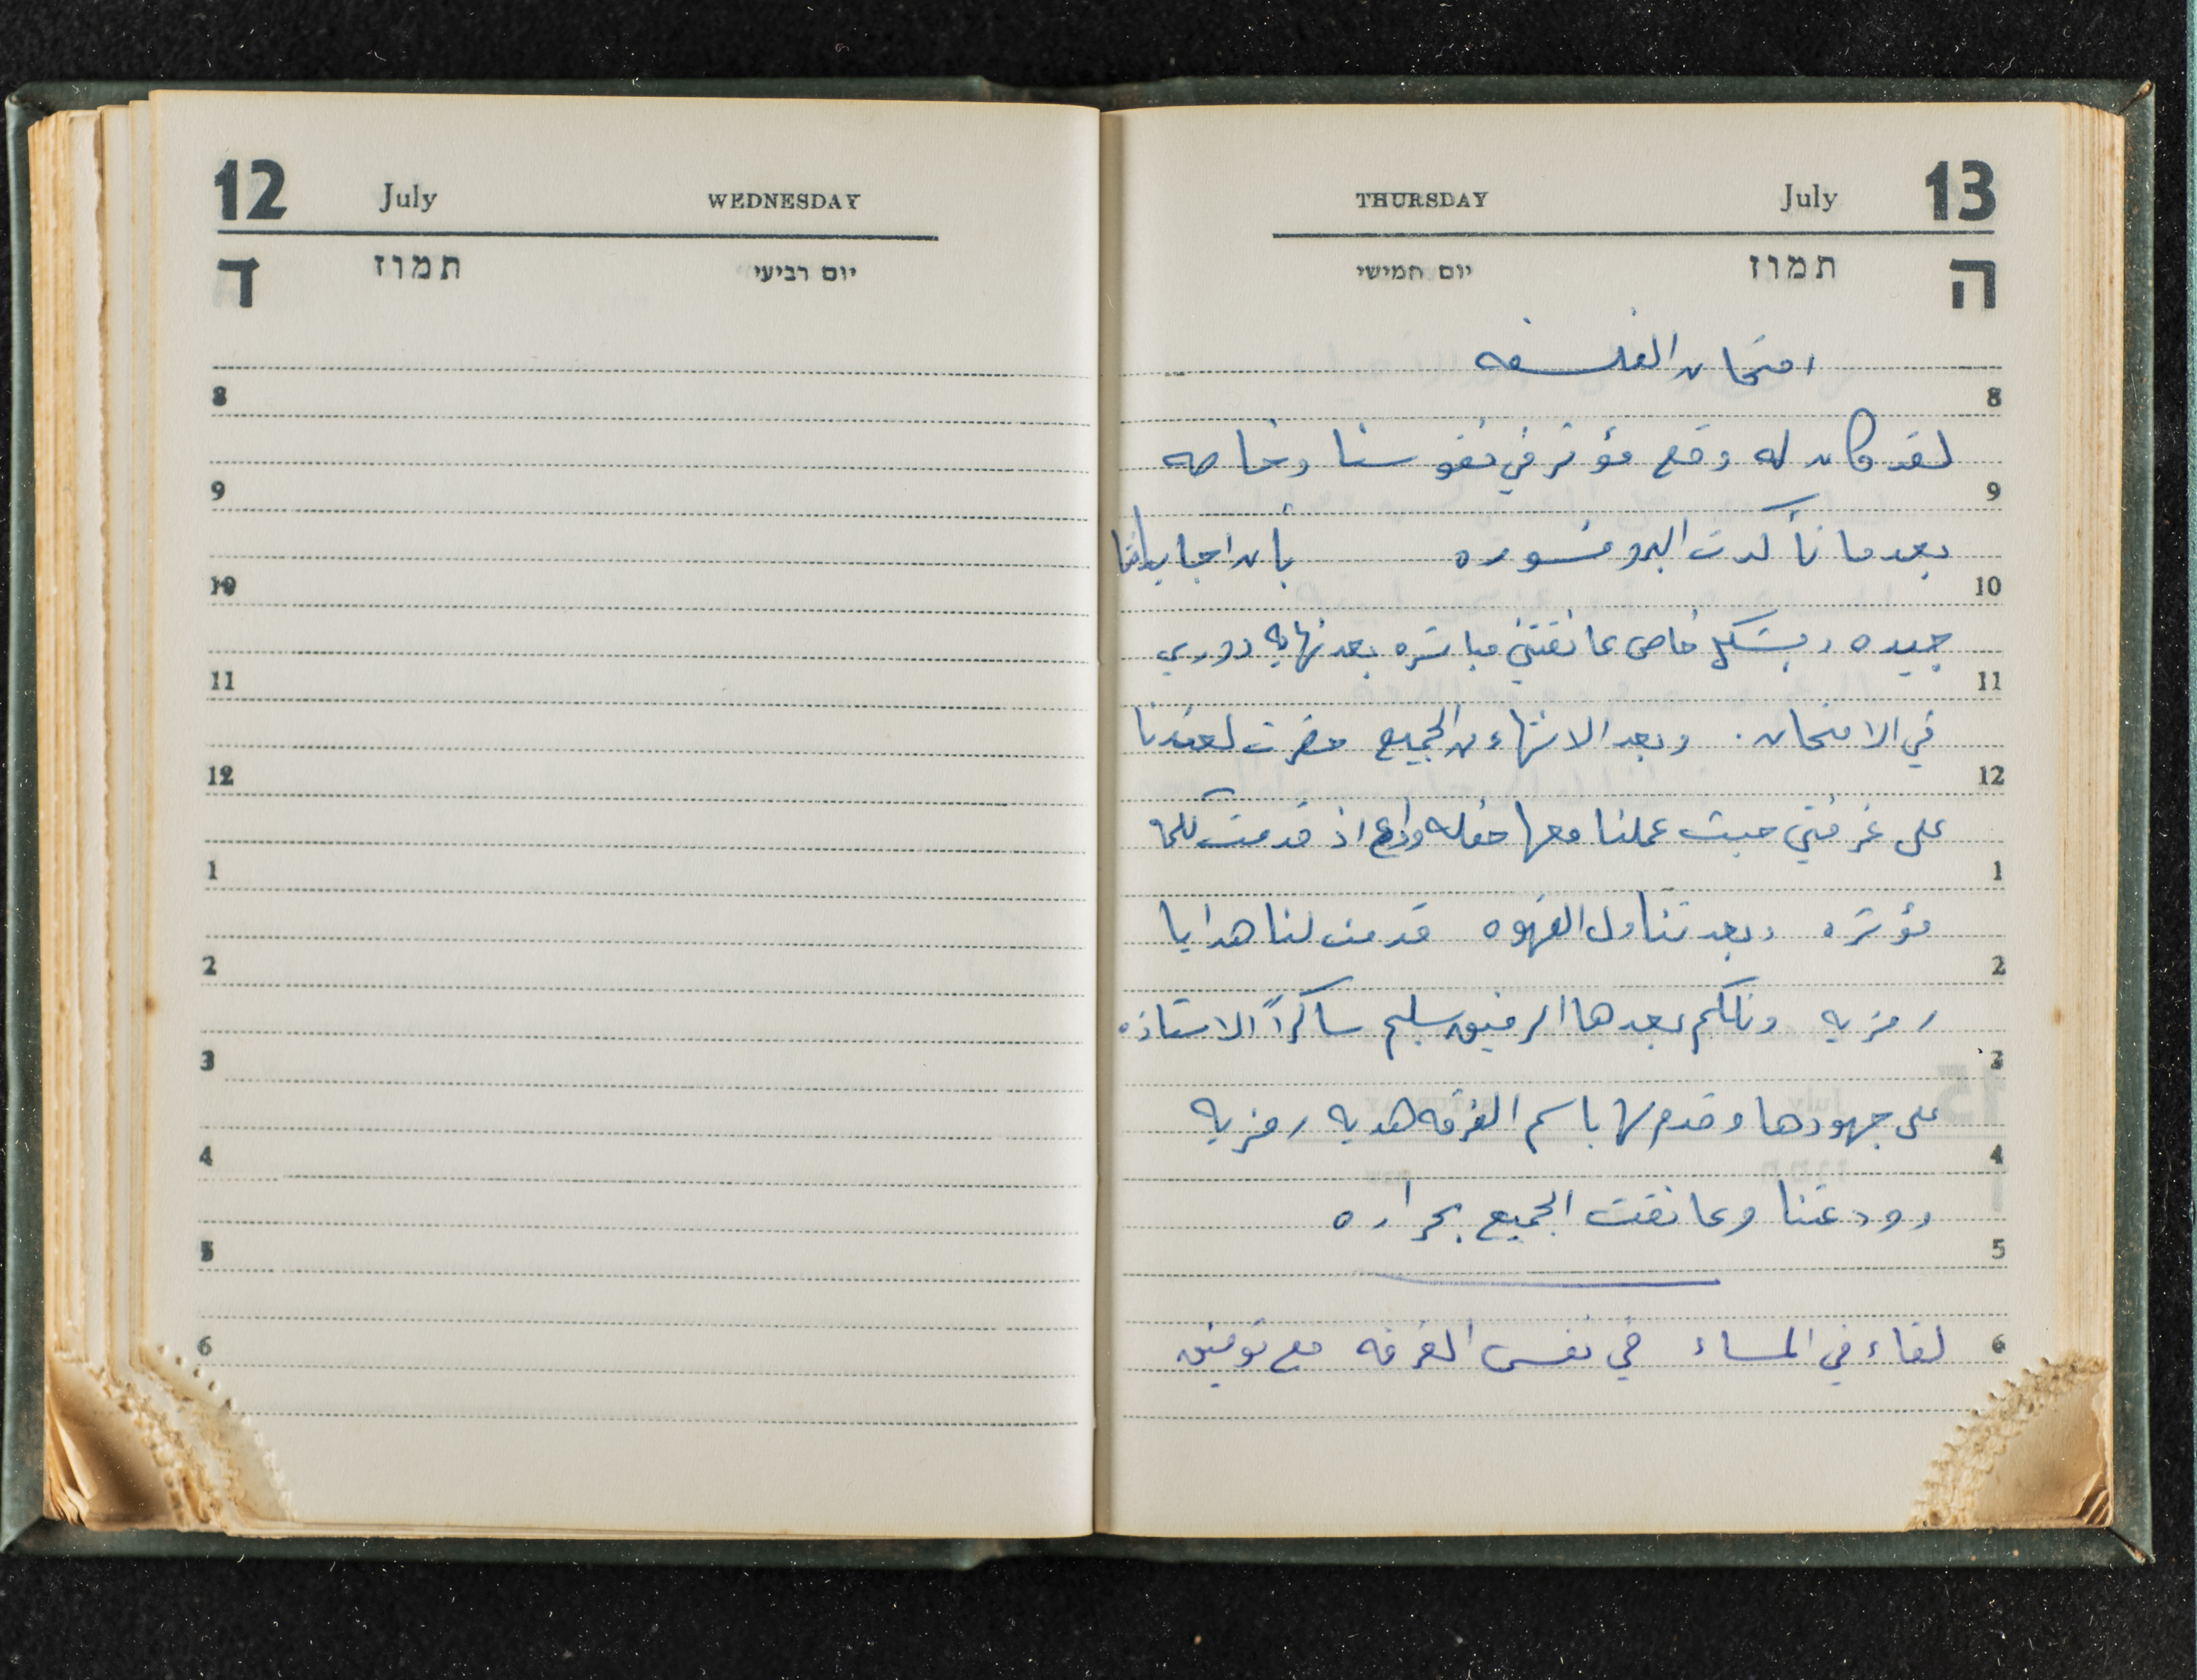 12 July WEDNESDAY
ד תמוז יום רביעי
8
9
10
11
12
1
2
3
4
5
6
THURSDAY July 13
ה תמוז יום חמישי
امتحان الفلسفه
8
لقد كان له وقع مؤثر في نفوسنا وخاصه
9
بعدما تأكدت البروفسوره بأن اجاباتنا
10
جيده وبشكل خاص عانقتني مباشره بعد نهاية دوري
11
في الامتحان. وبعد الانتهاء من الجميع حضرت لعندنا
12
على غرفتي حيث عملنا معها حفله وداع اذ قدمت كلمة
1
مؤثره وبعد تناول القهوه قدمت لنا هدايا
2
رمزيه وتكلم بعدها الرفيق سليم شاكراً الاستاذه
3
على جهودها وقدم لها باسم الفرقه هديه رمزيه
4
وودعتنا وعانقت الجميع بحراره
5
6 لقاء في المساء في نفس الغرفه مع توفيق